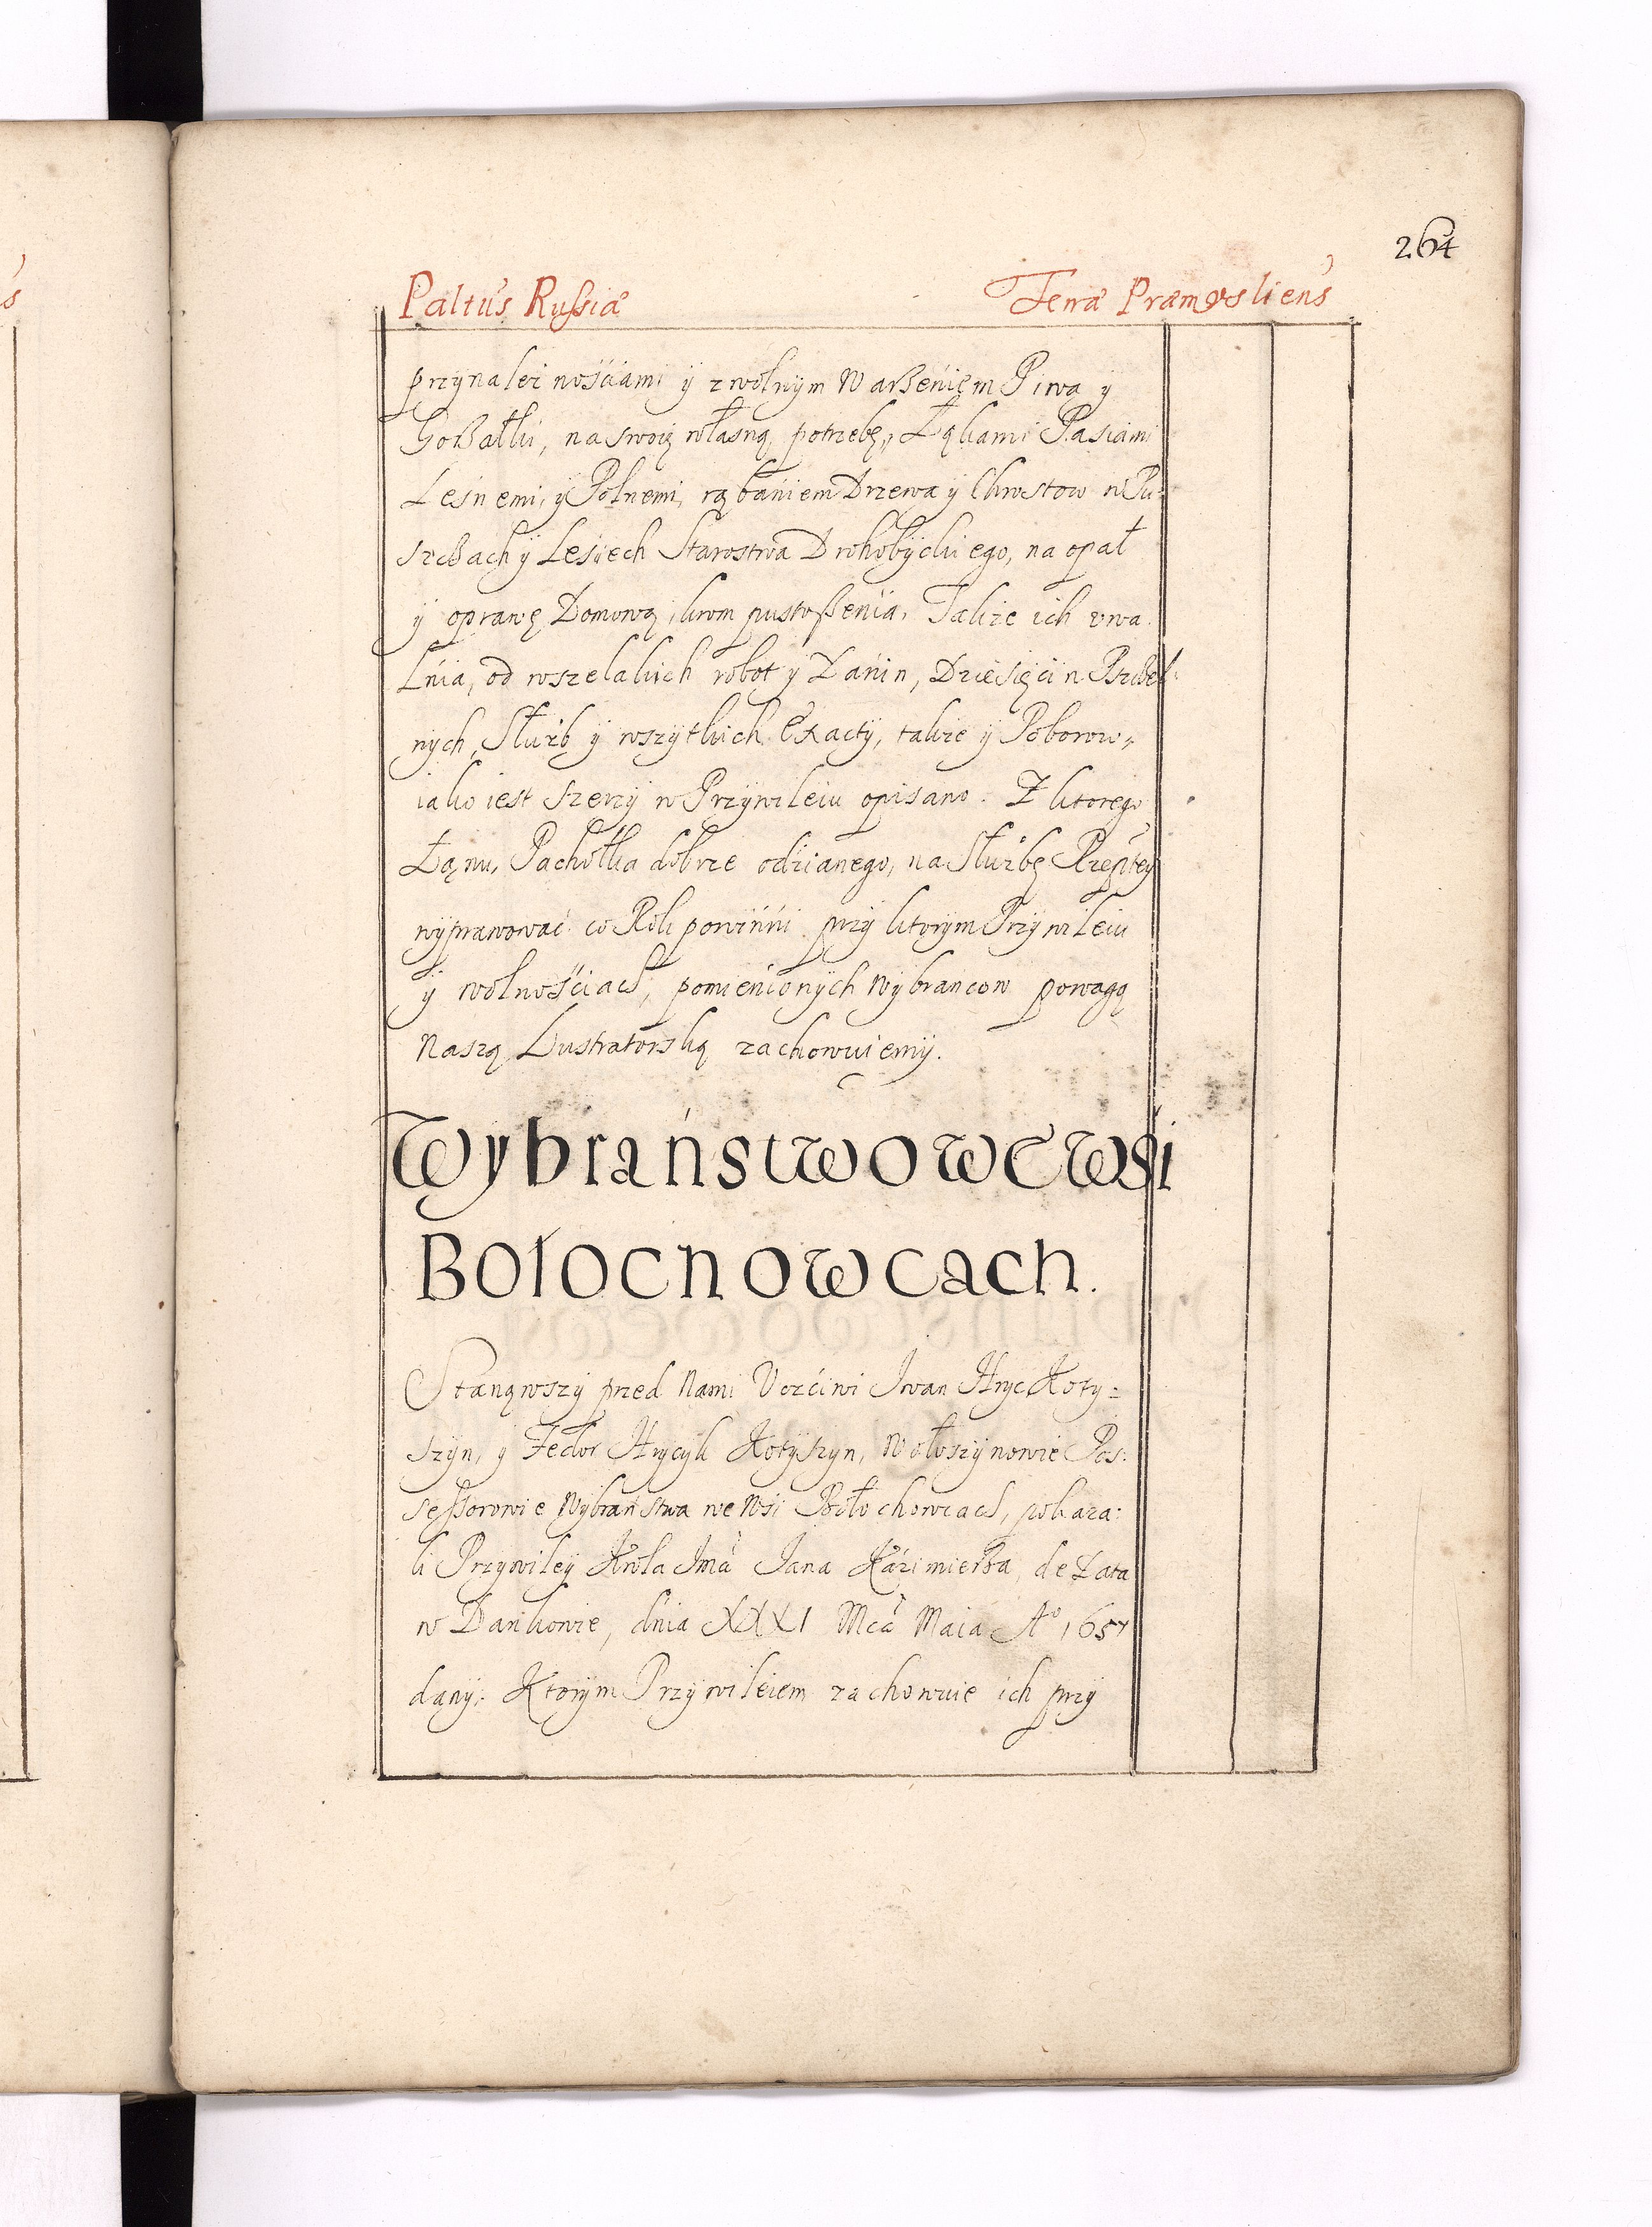 264
Paltus Russiæ Terræ Præmysliens
przynależnościami ÿ z wolnym Warzeniem Piwa ÿ
Gorzałki, na swoię własną potrzebę, Łąkami Pasiami
Leśnemi, ÿ Polnemi, rąbaniem Drzewa ÿ Chrostow w Pu:
szczach ÿ Lesiech Starostwa Drohobÿckiego, na opał
ÿ oprawę Domową, krom pustoszenia, Także ich vwa:
lnia, od wszelakich robot ÿ Danin, Dziesięcin Pszczel:
nych, Służb ÿ wszytkich Exactÿ, także ÿ Poborow,
iako iest szerzÿ w Przÿwileiu opisano. Z ktorego
Łanu, Pachołka dobrze odzianego, na Służbę Rzeptey
wÿprawować co Rok powinni. przÿ ktorÿm Przÿwileiu
ÿ wolnościach, pomienionÿch Wÿbrancow powagą
Naszą Lustratorską zachowuiemÿ.
Wybraństwo we Wsi
Bołochowcach.
Stanąwszÿ przed Nami Vczciwi Iwan Hryc Kotÿ=
szÿn, ÿ Fedor Hrycÿk Kotÿszÿn, Wołoszÿnowie Pos:
sessorowie Wÿbraństwa we Wsi Bołochowcach, pokaza:
li Przÿwileÿ Krola Jmci Jana Kazimierza, de Data
w Dankowie, dnia XXXI Mca Maia Ao 1657
danÿ: Ktorÿm Przÿwileiem zachowuie ich przÿ